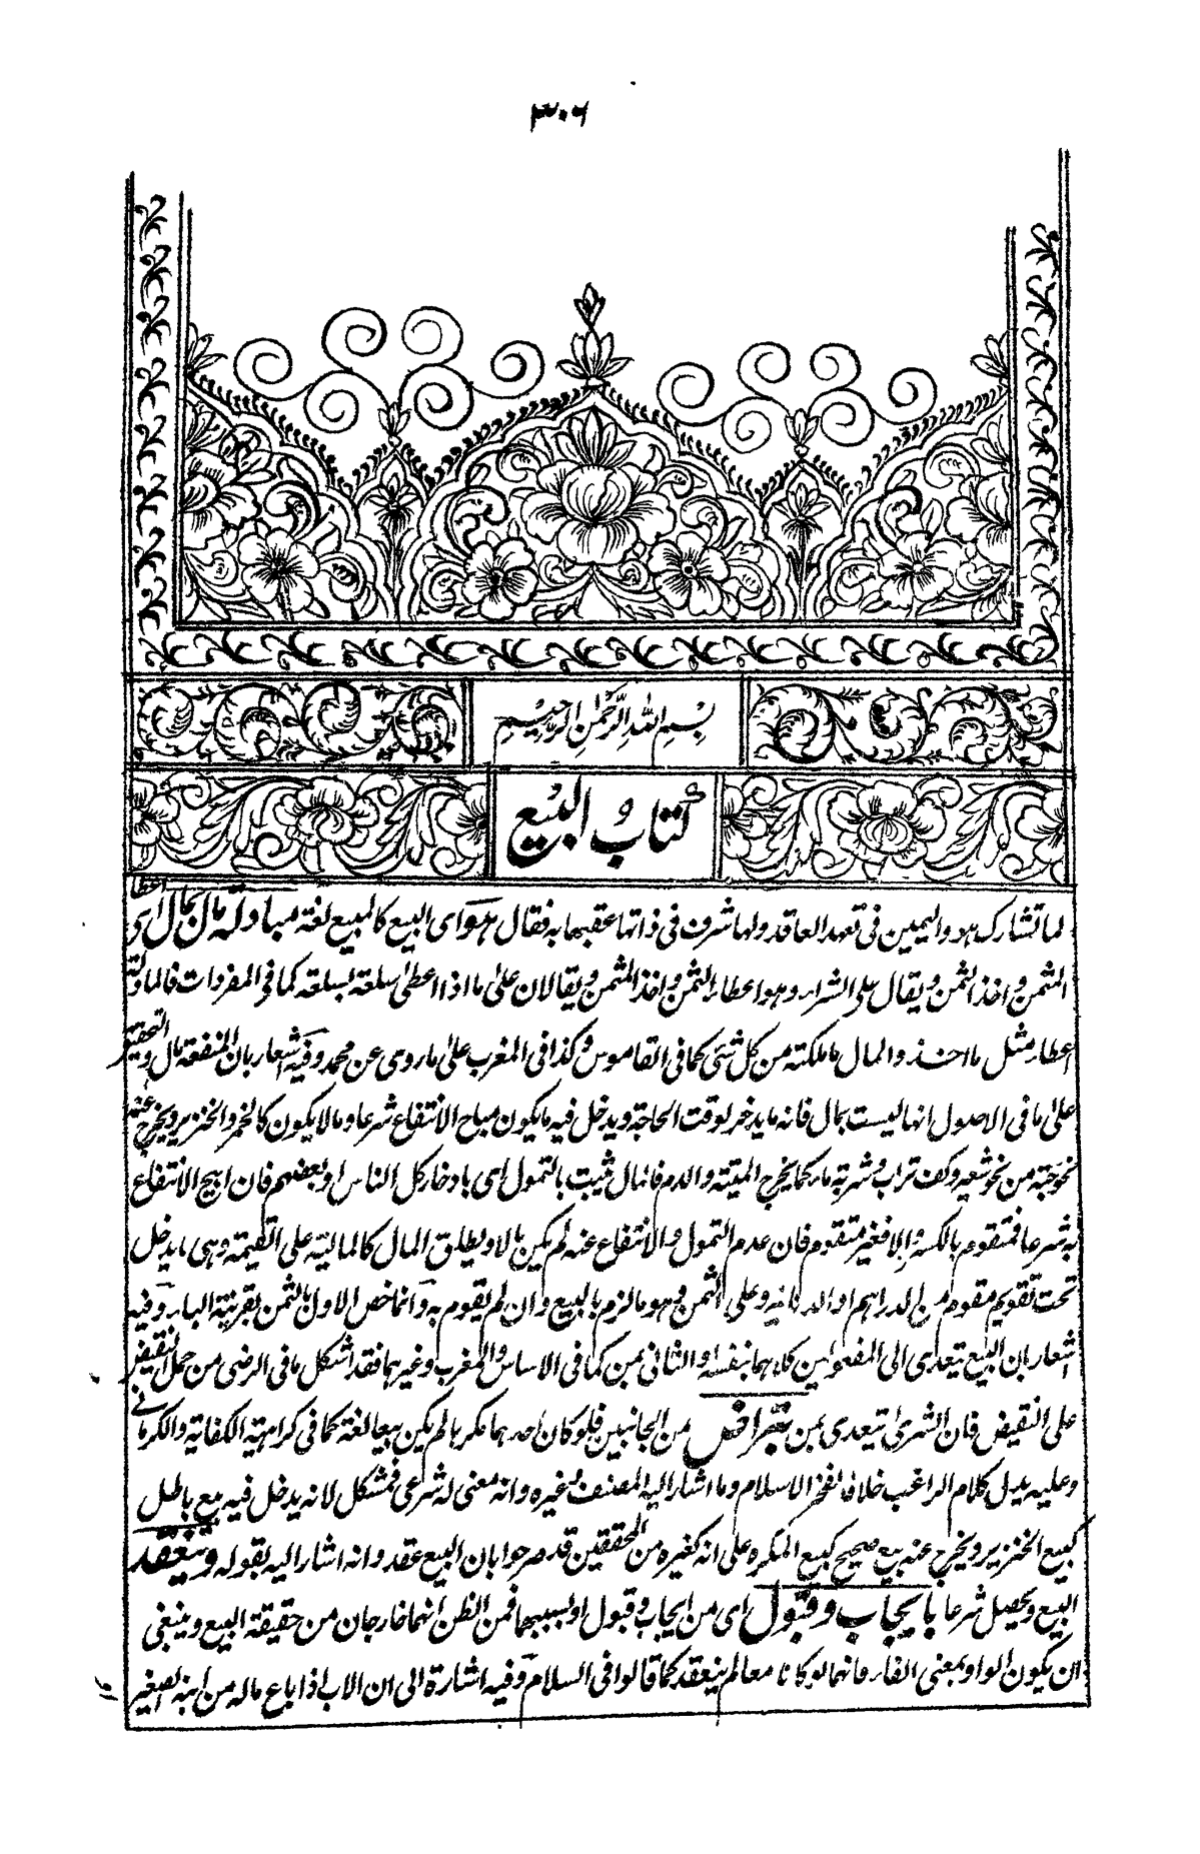 ٣٠٦
بسم الله الرحمن الرحيم
كتاب البيع
لما تشارك هو واليمين فى تعهد العاقد ولها شرف فى ذاتها عقبها به فقال هو اى البيع كالمبيع لغة مبادلة مال بمال اى اعطاء
المثمن واخذ الثمن ويقال على الشراء وهو اعطاء الثمن واخذ المثمن ويقالان على ما اذا اعطى سلعة بسلعة كما فى المفردات فالمبادلة
اعطاء مثل ما اخذ والمال ما ملكته من كل شئ كما فى القاموس وكذا فى المغرب على ما روى عن محمد وفيه اشعار بان المنفعة مال والتحقيق
على ما فى الاصول انها ليست بمال فانه ما يدخر لوقت الحاجة ويدخل فيه ما يكون مباح الانتفاع شرعا وما لا يكون كالخمر والخنزير ويخرج عنه
نحو حبة من نحو شعير وكف تراب وشربة ماء كما يخرج الميتة والدم فالمال ثبت بالتمول اى بادخار كل الناس او بعضهم فان ابيح الانتفاع
به شرعا فمتقوم بالكسر والا فغير متقوم فان عدم التمول والانتفاع عنه لم يكن مالا ويطلق المال كالمالية على القيمة وهى ما يدخل
تحت تقويم مقوم من الدراهم او الدنانير وعلى الثمن وهو ما لزم بالبيع وان لم يقوم به وانما خص الاول بالثمن بقرينة الباء وفيه
اشعار بان البيع تيعدى الى المفعولين كلاهما بنفسه او الثانى بمن كما فى الاساس والمغرب وغيرهما فقد اشكل ما فى الرضى من حمل النقيض
على النقيض فان الشرى تيعدى بمن بتراض من الجانبين فلو كان احدهما مكرها لم يكن بيعا لغة كما فى كراهية الكفاية والكرمانى
وعليه يدل كلام الراغب خلافا لفخر الاسلام وما اشار اليه المصنف وغيره وانه معنى له شرعى فمشكل لانه يدخل فيه بيع باطل
كبيع الخنزير ويخرج عنه بيع صحيح كبيع المكره على انه كغيره من المحققين قد صرحوا بان البيع عقد وانه اشار اليه بقوله وينعقد
البيع ويحصل شرعا بايجاب وقبول اى من ايجاب وقبول او بسببهما فمن الظن انهما خارجان من حقيقة البيع وينبغى
ان يكون الواو بمعنى الفاء فانهما لو كانا معا لم ينعقد كما قالوا فى السلام وفيه اشارة الى ان الاب اذا باع ماله من ابنه الصغير